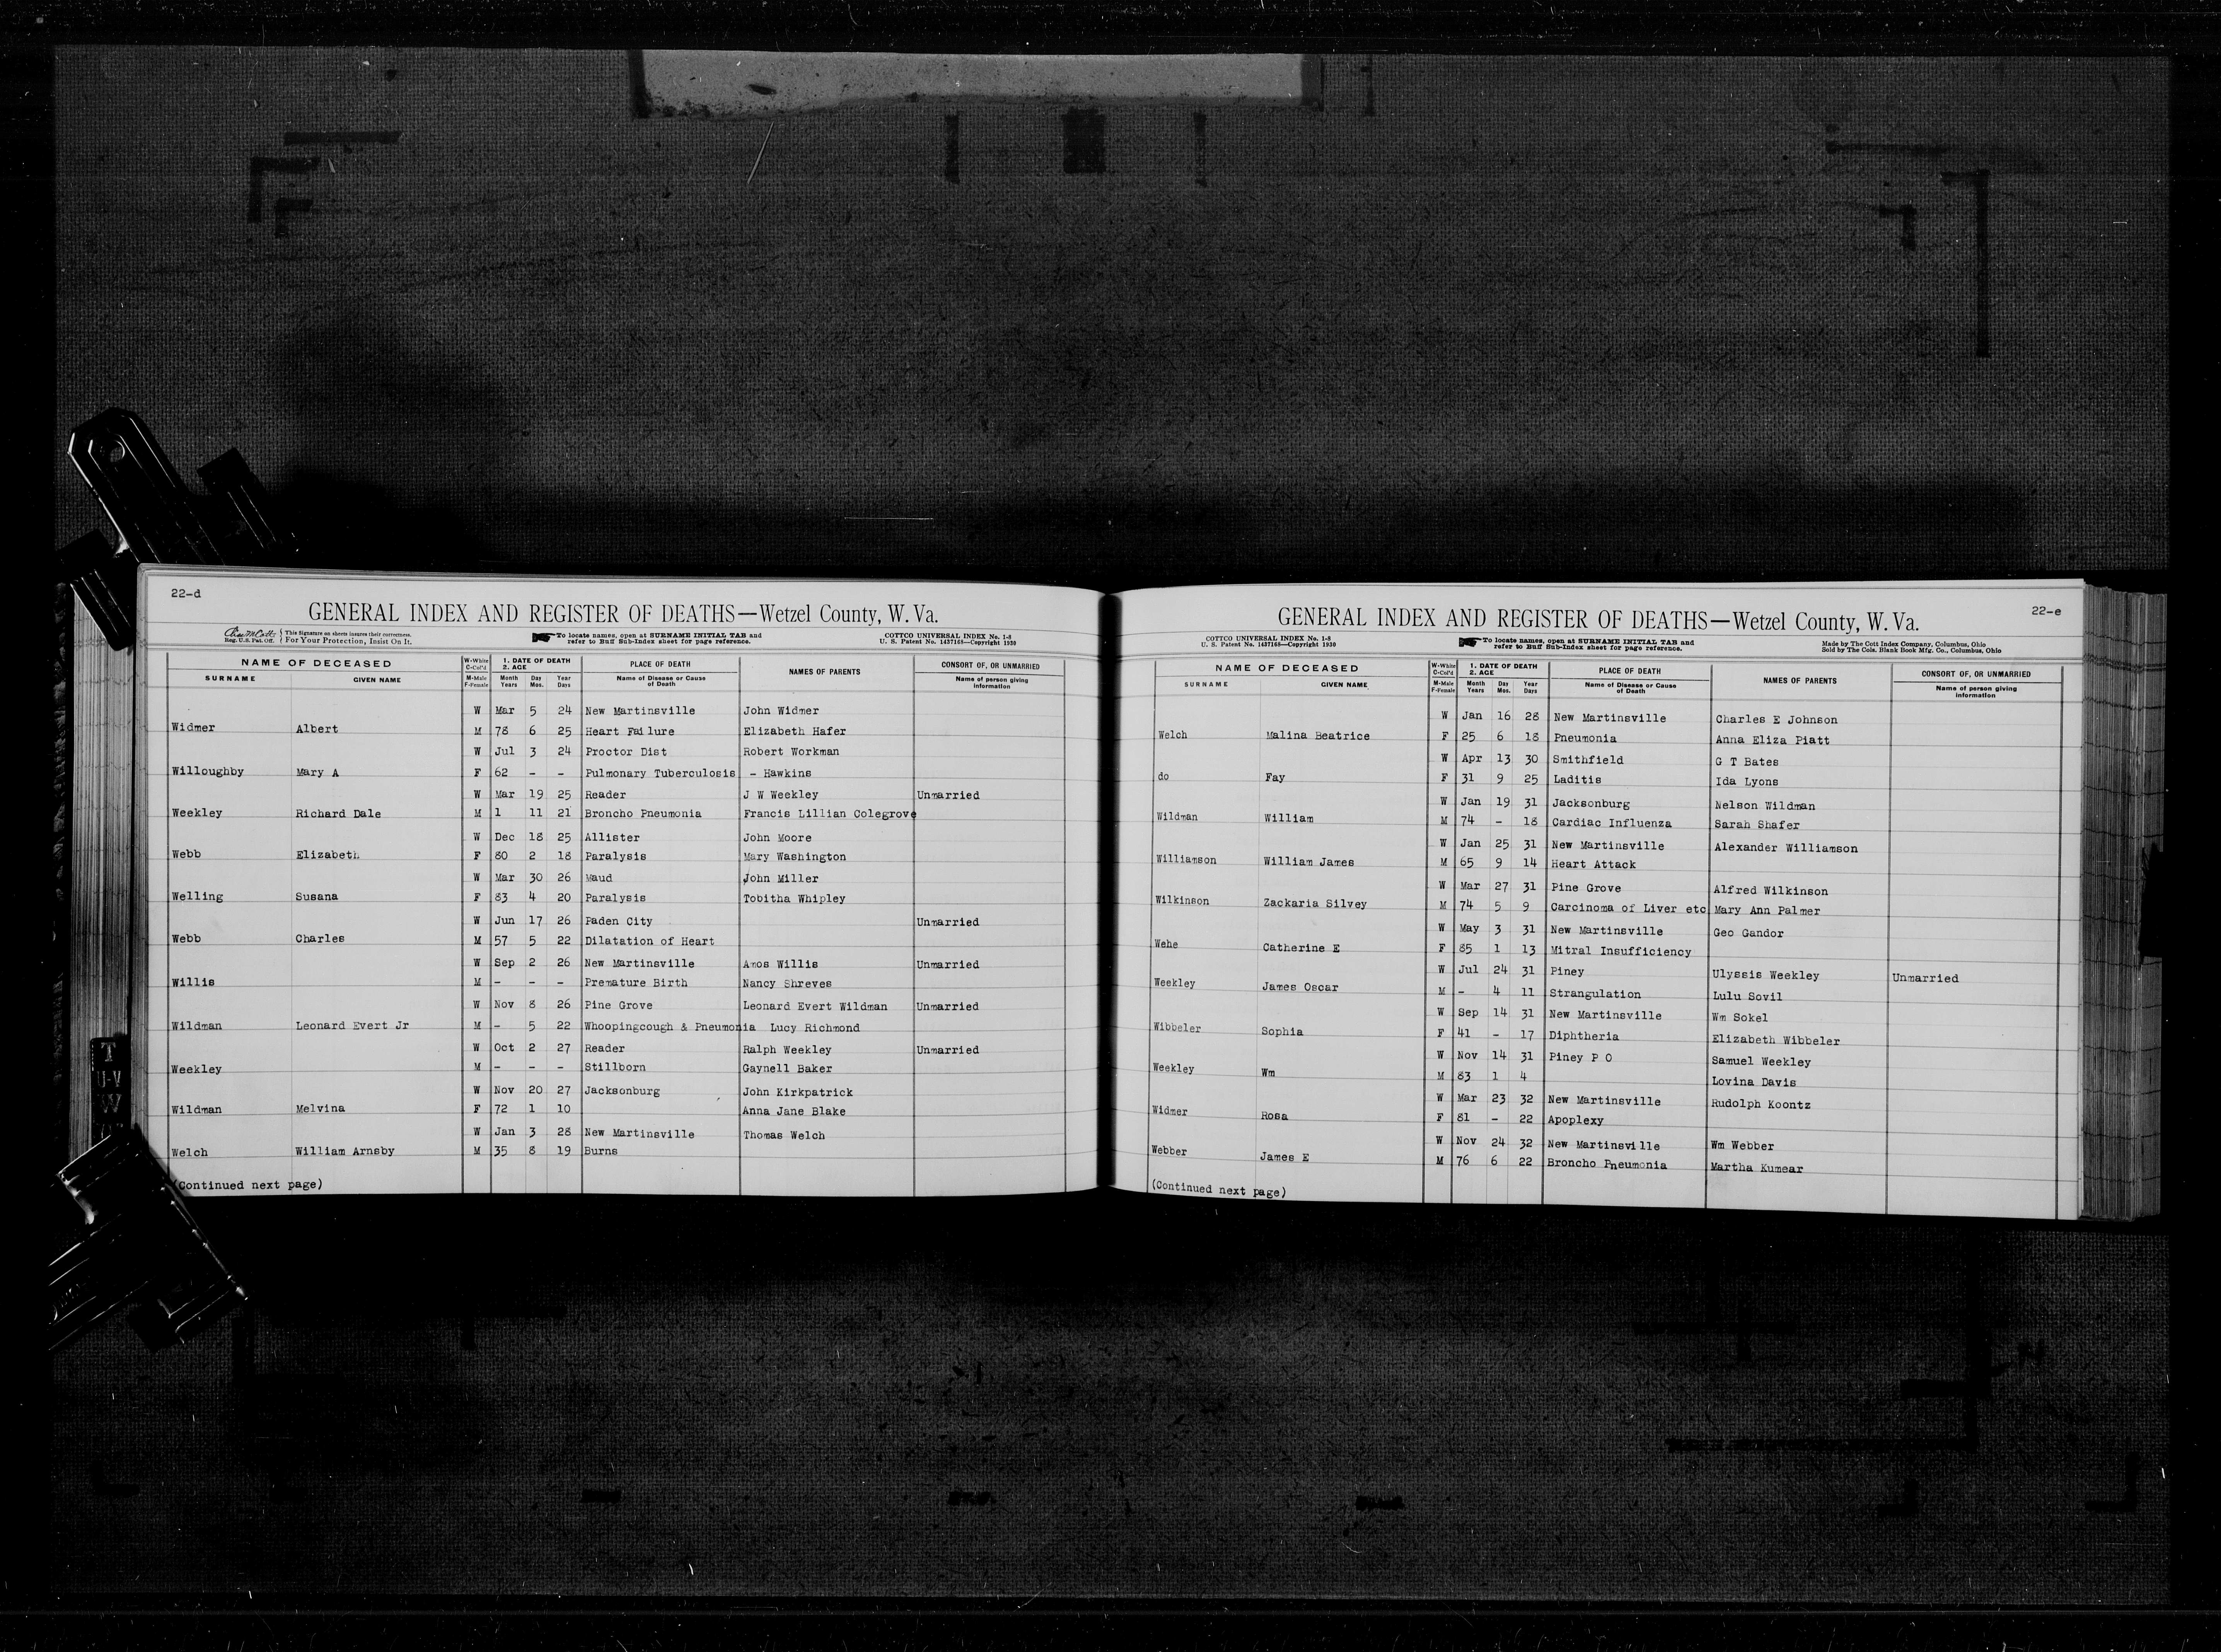 22-d
GENERAL INDEX AND REGISTER OF DEATHS—Wetzel County, W. Va.
Reg. U.S. Pat. Off. This Signature on sheets insures their correctness. For Your Protection, Insist On It.
To locate names, open at SURNAME INITIAL TAB and refer to Buff Sub-Index sheet for page reference.
COTTCO UNIVERSAL INDEX No. 1-8
U. S. Patent No. 1437168—Copyright 1930
NAME OF DECEASED W-White C-Col'd 1. DATE OF DEATH 2. AGE PLACE OF DEATH NAMES OF PARENTS CONSORT OF, OR UNMARRIED
SURNAME GIVEN NAME M-Male F-Female Month Years Day Mos. Year Days Name of Disease or Cause of Death Name of person giving information
W Mar 5 24 New Martinsville John Widmer
Widmer Albert M 78 6 25 Heart Failure Elizabeth Hafer
W Jul 3 24 Proctor Dist Robert Workman
Willoughby Mary A F 62 - - Pulmonary Tuberculosis - Hawkins
W Mar 19 25 Reader J W Weekley Unmarried
Weekley Richard Dale M 1 11 21 Broncho Pneumonia Francis Lillian Colegrove
W Dec 18 25 Allister John Moore
Webb Elizabeth F 80 2 18 Paralysis Mary Washington
W Mar 30 26 Maud John Miller
Welling Susana F 83 4 20 Paralysis Tobitha Whipley
W Jun 17 26 Paden City Unmarried
Webb Charles M 57 5 22 Dilatation of Heart
W Sep 2 26 New Martinsville Amos Willis Unmarried
Willis M - - - Premature Birth Nancy Shreves
W Nov 8 26 Pine Grove Leonard Evert Wildman Unmarried
Wildman Leonard Evert Jr M - 5 22 Whoopingcough & Pneumonia Lucy Richmond
W Oct 2 27 Reader Ralph Weekley Unmarried
Weekley M - - - Stillborn Gaynell Baker
W Nov 20 27 Jacksonburg John Kirkpatrick
Wildman Melvina F 72 1 10 Anna Jane Blake
W Jan 3 28 New Martinsville Thomas Welch
Welch William Arnsby M 35 8 19 Burns
(Continued next page)
T
U-V
W
22-e
GENERAL INDEX AND REGISTER OF DEATHS—Wetzel County, W. Va.
COTTCO UNIVERSAL INDEX No. 1-8
U. S. Patent No. 1437168—Copyright 1930
To locate names, open at SURNAME INITIAL TAB and refer to Buff Sub-Index sheet for page reference.
Made by The Cott Index Company, Columbus, Ohio
Sold by The Cols. Blank Book Mfg. Co., Columbus, Ohio
NAME OF DECEASED W-White C-Col'd 1. DATE OF DEATH 2. AGE PLACE OF DEATH NAMES OF PARENTS CONSORT OF, OR UNMARRIED
SURNAME GIVEN NAME M-Male F-Female Month Years Day Mos. Year Days Name of Disease or Cause of Death Name of person giving information
W Jan 16 28 New Martinsville Charles E Johnson
Welch Malina Beatrice F 25 6 18 Pneumonia Anna Eliza Piatt
W Apr 13 30 Smithfield G T Bates
do Fay F 31 9 25 Laditis Ida Lyons
W Jan 19 31 Jacksonburg Nelson Wildman
Wildman William M 74 - 18 Cardiac Influenza Sarah Shafer
W Jan 25 31 New Martinsville Alexander Williamson
Williamson William James M 65 9 14 Heart Attack
W Mar 27 31 Pine Grove Alfred Wilkinson
Wilkinson Zackaria Silvey M 74 5 9 Carcinoma of Liver etc Mary Ann Palmer
W May 3 31 New Martinsville Geo Gandor
Wehe Catherine E F 85 1 13 Mitral Insufficiency
W Jul 24 31 Piney Ulyssis Weekley Unmarried
Weekley James Oscar M - 4 11 Strangulation Lulu Sovil
W Sep 14 31 New Martinsville Wm Sokel
Wibbeler Sophia F 41 - 17 Diphtheria Elizabeth Wibbeler
W Nov 14 31 Piney P O Samuel Weekley
Weekley Wm M 83 1 4 Lovina Davis
W Mar 23 32 New Martinsville Rudolph Koontz
Widmer Rosa F 81 - 22 Apoplexy
W Nov 24 32 New Martinsville Wm Webber
Webber James E M 76 6 22 Broncho Pneumonia Martha Kumear
(Continued next page)